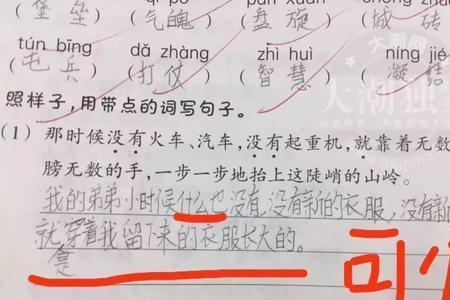 bǎo lěi qì pò pán xuán chéng zhuān
(堡垒)(气魄)(盘旋)(城砖
tún bīng dǎ zhàng zhì huì níng jié
(屯兵)(打仗)(智慧)(凝结
照样子,用带点的词写句子。
(1) 那时候没有火车、汽车,没有起重机,就靠着无数
膀无数的手,一步一步地抬上这陡峭的山岭。
我的弟弟小时候什么也没有,没有新的衣服,没有新
就是穿着我留下来的衣服长大的。
可
大潮网
大潮独家